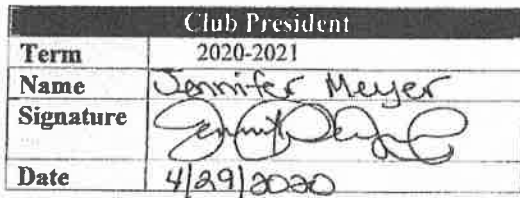 Club President
Term 2020-2021
Name Jennifer Meyer
Signature
Date 4/29/2020